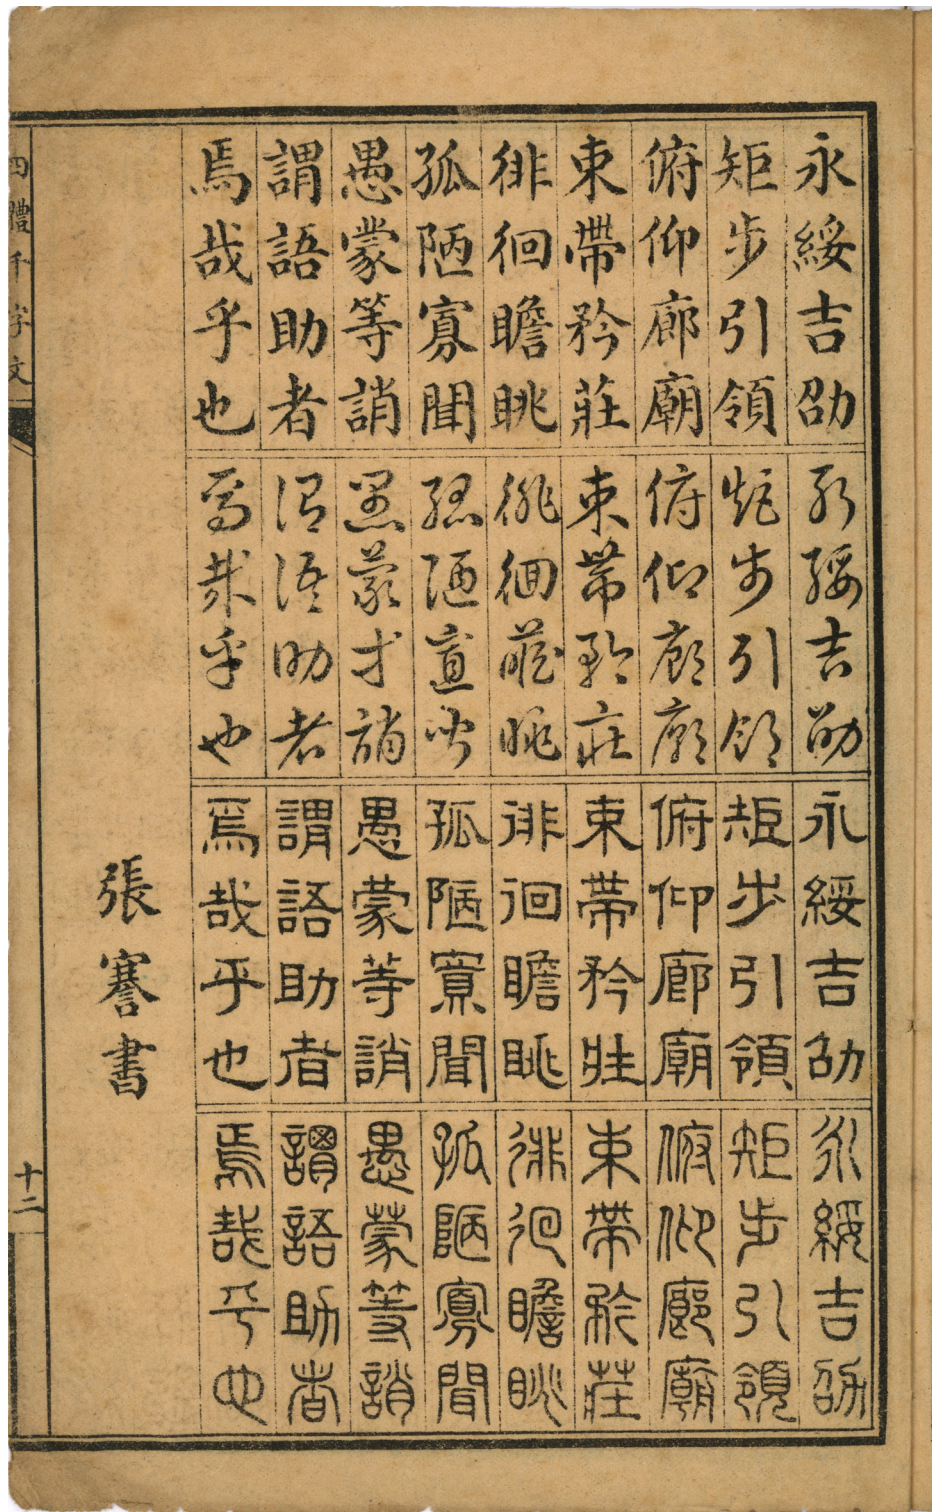 永綏吉劭
矩步引領
俯仰廊廟
束帶矜莊
徘徊瞻眺
孤陋寡聞
愚蒙等誚
謂語助者
焉哉乎也
永綏吉劭
矩步引領
俯仰廊廟
束帶矜莊
徘徊瞻眺
孤陋寡聞
愚蒙等誚
謂語助者
焉哉乎也
永綏吉劭
矩步引領
俯仰廊廟
束帶矜莊
徘徊瞻眺
孤陋寡聞
愚蒙等誚
謂語助者
焉哉乎也
永綏吉劭
矩步引領
俯仰廊廟
束帶矜莊
徘徊瞻眺
孤陋寡聞
愚蒙等誚
謂語助者
焉哉乎也
張謇書
四體千字文
十二